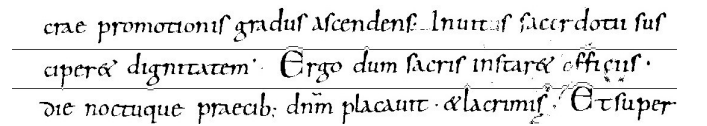 crae promotionis gradus ascendens. Inuitus sacerdotii sus
ciper& dignitatem. Ergo dum sacris instar& officiis.
die noctuque praecib; dnm placauit. &lacrimis. Et super